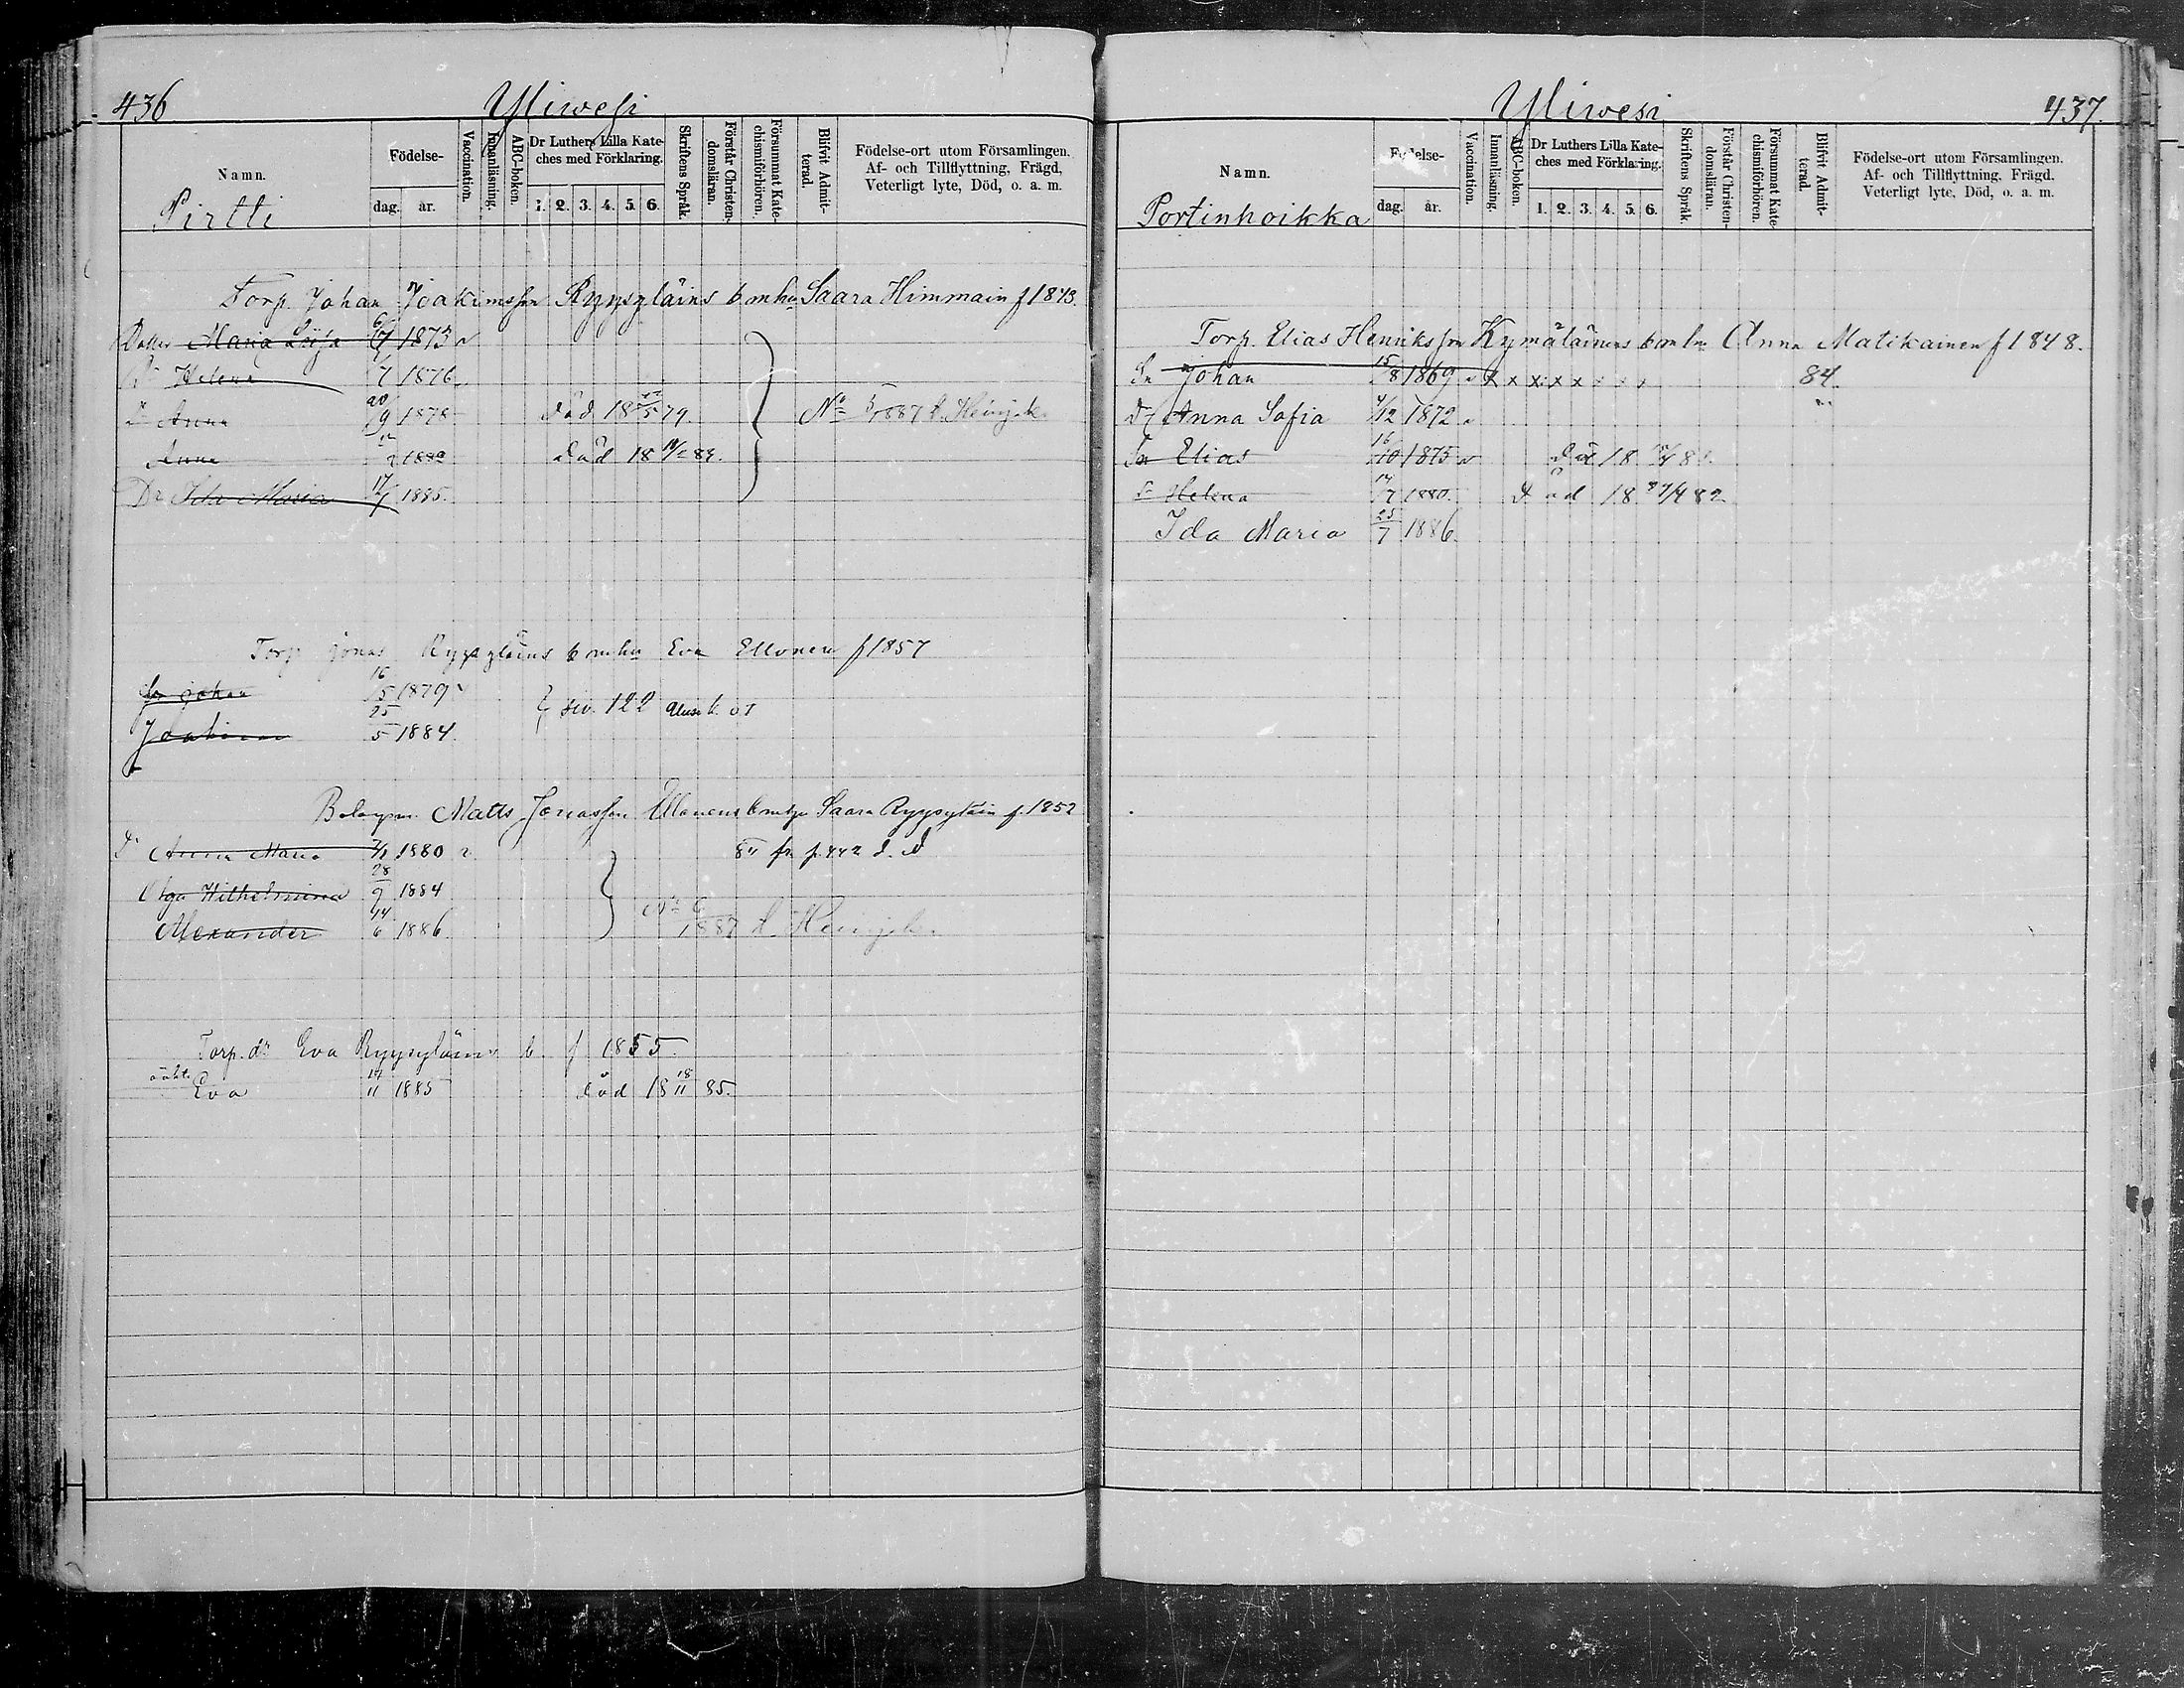 436
Yliwesi
Namn.
Pirtti
Födelse-
dag.
år.
Vaccination.
Innanläsning.
ABC-boken.
Dr Luthers Lilla Kate-
ches med Förklaring.
1. 2. 3. 4. 5. 6.
Skriftens Språk.
Förstår Christen-
domsläran.
Försummat Kate-
chismiförhören.
Blifvit Admit-
terad.
Födelse-ort utom Församlingen.
Af- och Tillflyttning, Frägd,
Veterligt lyte, Död, o. a. m.
Torp. Johan Joakimsson Ryypyläins b m hu Saara Himmain f 1843.
Maria Lisa 6/4 1873
Helena 7 1876
Dr Anna 20/9 1878 död 18 /5 79. No 5/1887 t. Heinjok.
Anna 2 1882 död 18 84.
Dr Ida Maria 17/1 1885.
Torp Jonas Ryypyläins b m hu Eva Ellonen f 1857
Sn Johan 16/5 1879
siv. 122
Joakim 25/5 1884
Matts Jonasson Ellonens Saara Ryypyläin f. 1852
Dr Anna Maria 1880 fr p. 442
Olga Wilhelmina 28/9 1884
Alexander 14/6 1886 No 6/1887 t. Heinjok.
Torp. dr Eva Ryypyläins b. f 1855.
oäkt.
Eva 14/11 1885 död 18 18/11 85.
Yliwesi
437.
Namn.
Portinhoikka
Födelse-
dag.
år.
Vaccination.
Innanläsning.
ABC-boken.
Dr Luthers Lilla Kate-
ches med Förklaring.
1. 2. 3. 4. 5. 6.
Skriftens Språk.
Förstår Christen-
domsläran.
Försummat Kate-
chismiförhören.
Blifvit Admit-
terad.
Födelse-ort utom Församlingen.
Af- och Tillflyttning, Frägd.
Veterligt lyte, Död, o. a. m.
Torp. Elias Henriksson Kymäläinens b m hu Anna Matikainen f 1848.
Sn Johan 15/8 1869 x x x x x 84.
Dr Anna Sofia 4/12 1872
Sn Elias 16/10 1875 död 18
Helena 14/7 1880. död 18 27/4 82
Ida Maria 25/7 1886